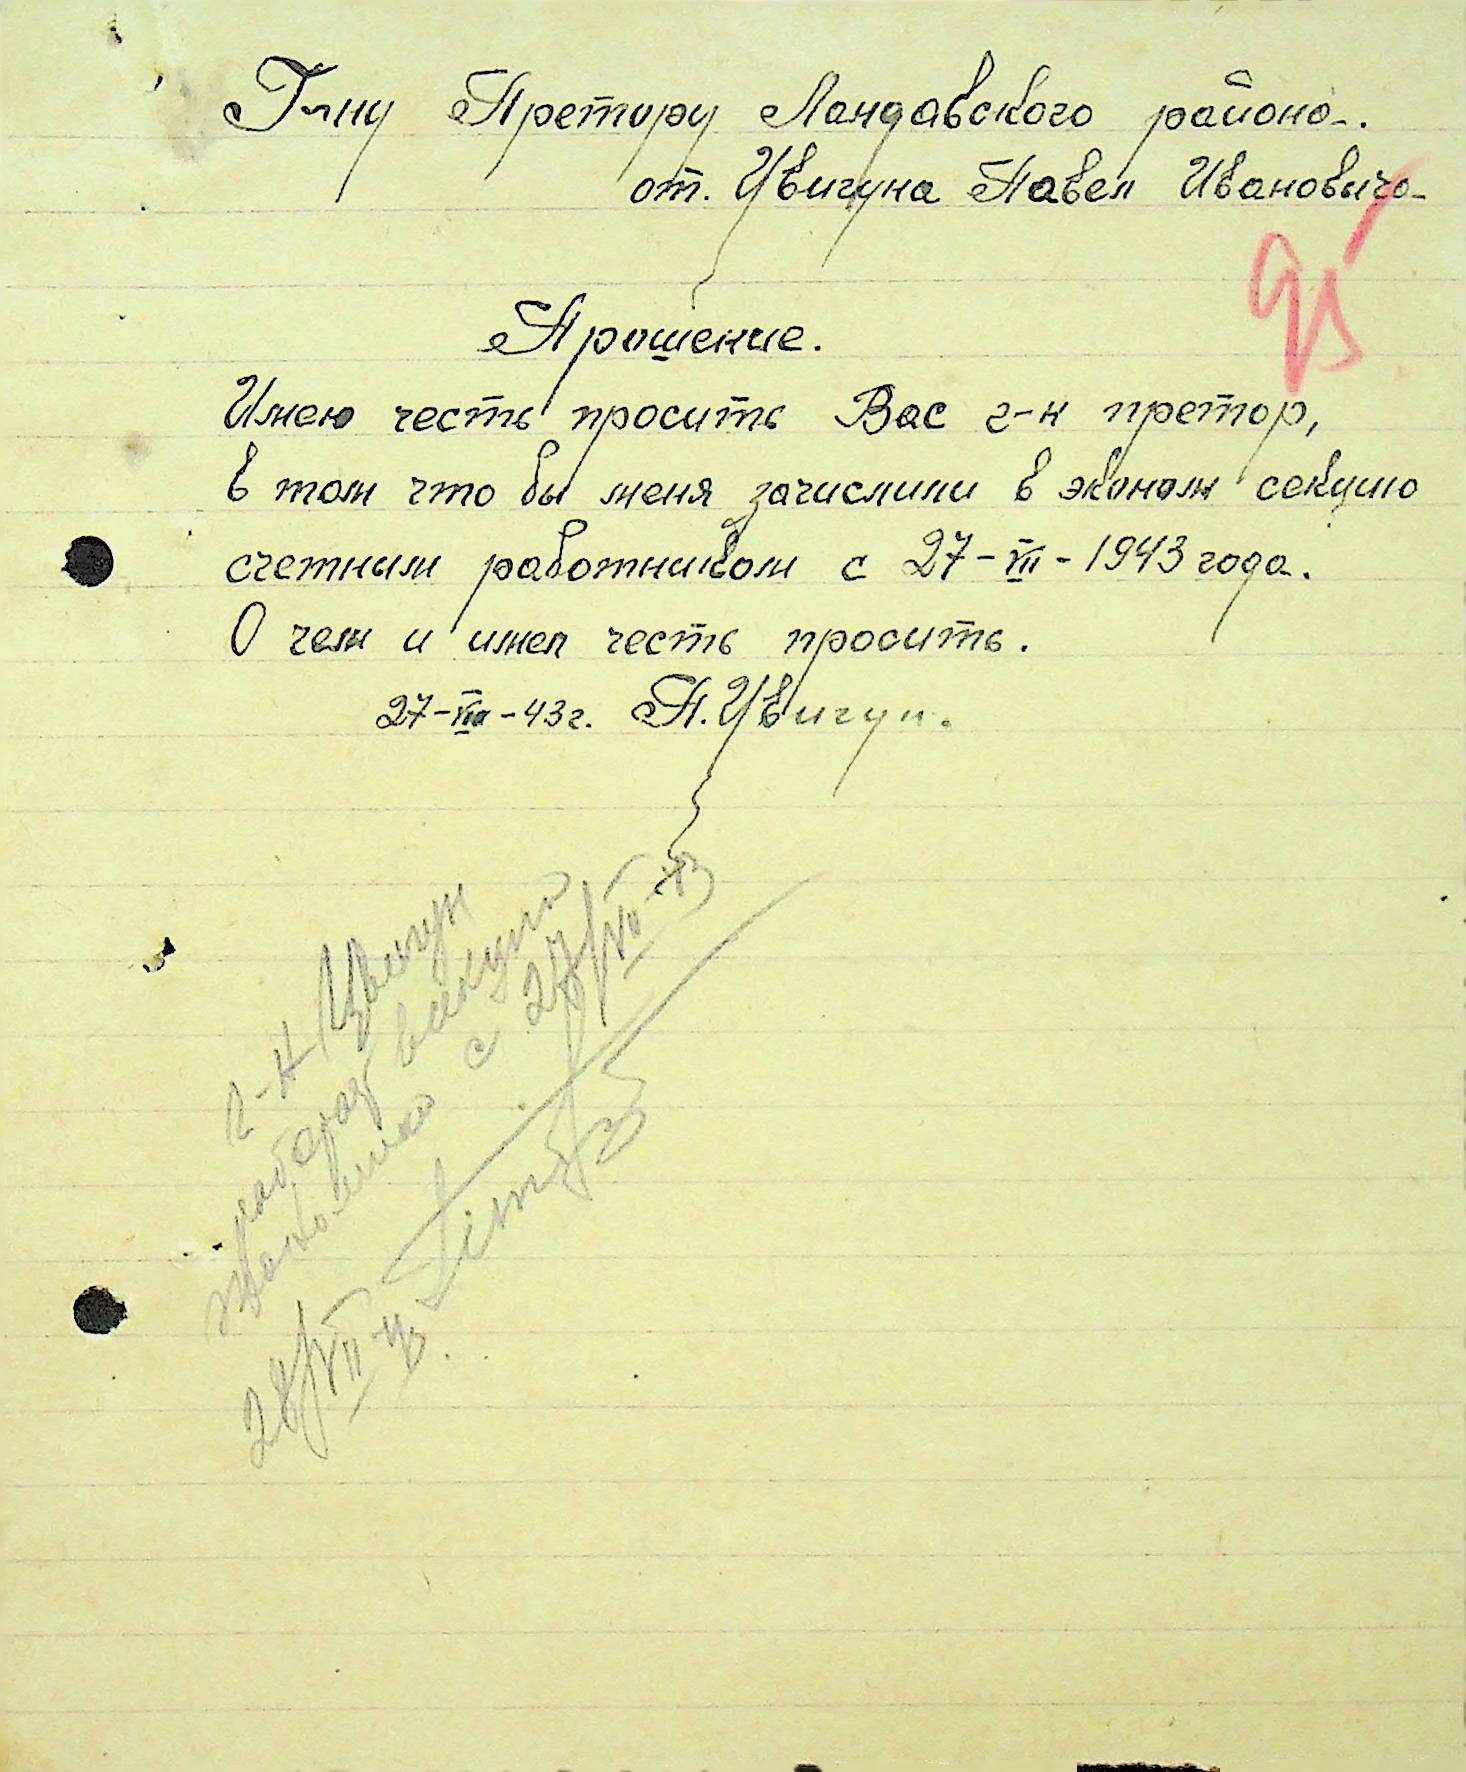 Г-ну Претору Ландавского района.
от. Цвигуна Павел Ивановича
95
Прошение.
Имею честь просить Вас г-н претор,
в том что бы меня зачислили в эконом секцию
счетным работником с 27-VII-1943 года.
О чем и имел честь просить.
27-VII-43 г. П. Цвигун.
г-н Цвигун
в секцию
с 27/VII-43
28/VII-43.